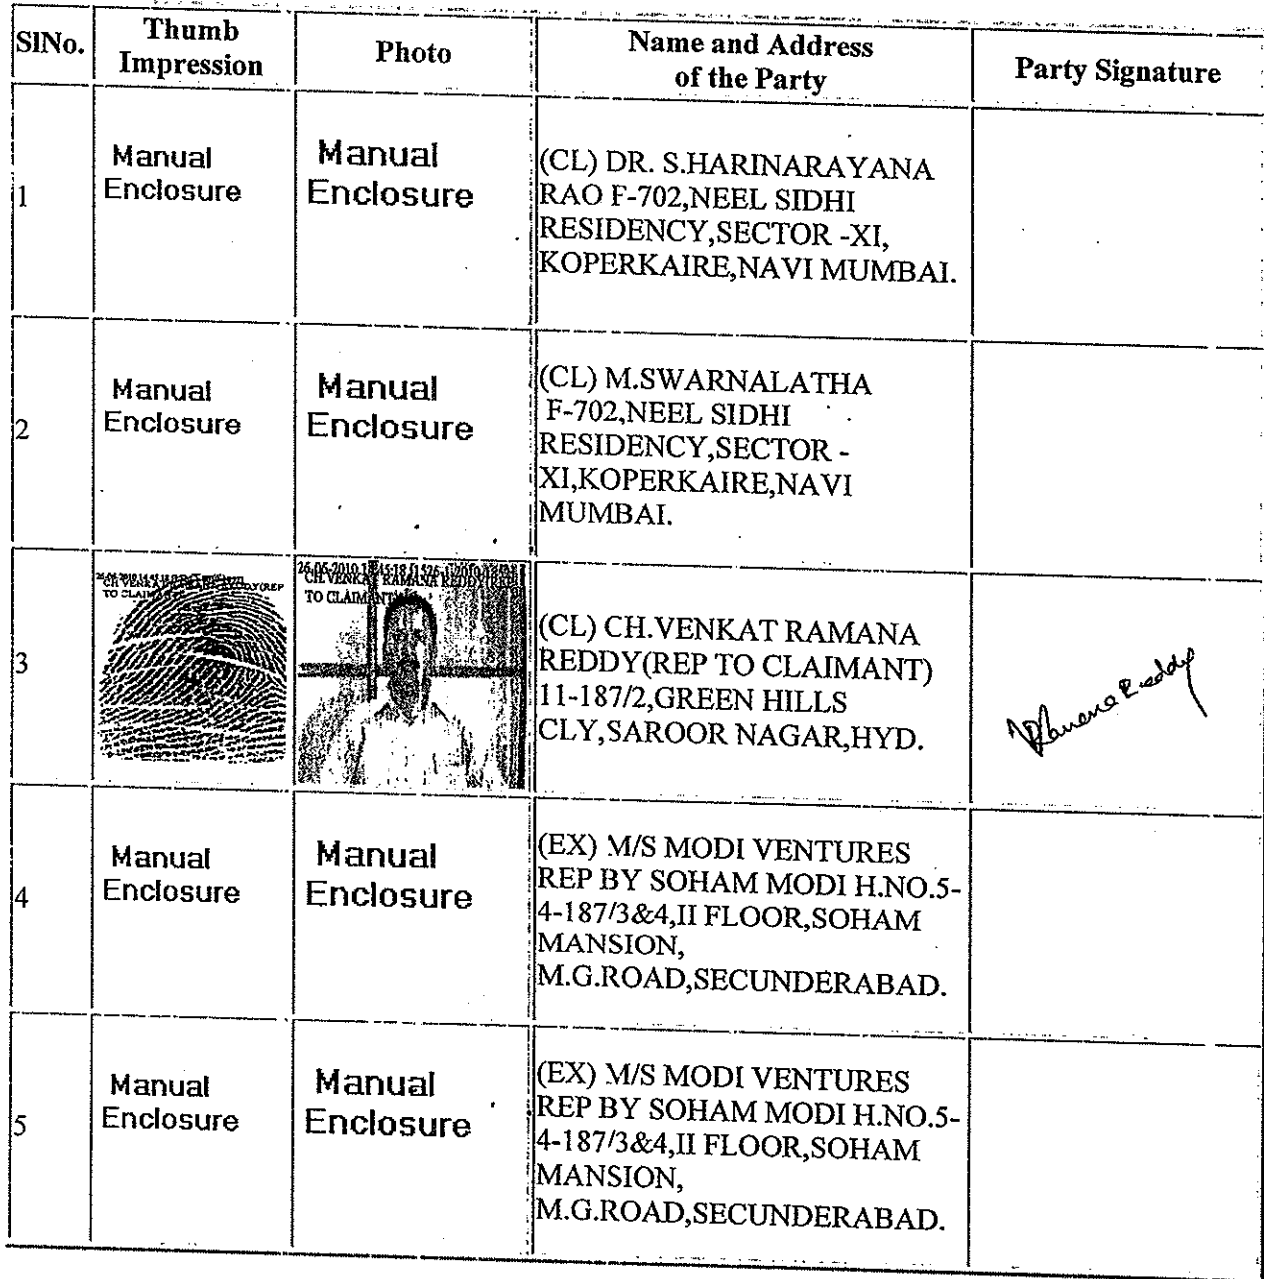 SlNo.
Thumb
Impression
Photo
Name and Address
of the Party
Party Signature
1
Manual
Enclosure
Manual
Enclosure
(CL) DR. S.HARINARAYANA
RAO F-702,NEEL SIDHI
RESIDENCY,SECTOR -XI,
KOPERKAIRE,NAVI MUMBAI.
2
Manual
Enclosure
Manual
Enclosure
(CL) M.SWARNALATHA
F-702,NEEL SIDHI
RESIDENCY,SECTOR -
XI,KOPERKAIRE,NAVI
MUMBAI.
3
TO CLAIMANT)
CH.VENKAT RAMANA REDDY(REP
TO CLAIMANT)
(CL) CH.VENKAT RAMANA
REDDY(REP TO CLAIMANT)
11-187/2,GREEN HILLS
CLY,SAROOR NAGAR,HYD.
VRamana Reddy
4
Manual
Enclosure
Manual
Enclosure
(EX) M/S MODI VENTURES
REP BY SOHAM MODI H.NO.5-
4-187/3&4,II FLOOR,SOHAM
MANSION,
M.G.ROAD,SECUNDERABAD.
5
Manual
Enclosure
Manual
Enclosure
(EX) M/S MODI VENTURES
REP BY SOHAM MODI H.NO.5-
4-187/3&4,II FLOOR,SOHAM
MANSION,
M.G.ROAD,SECUNDERABAD.